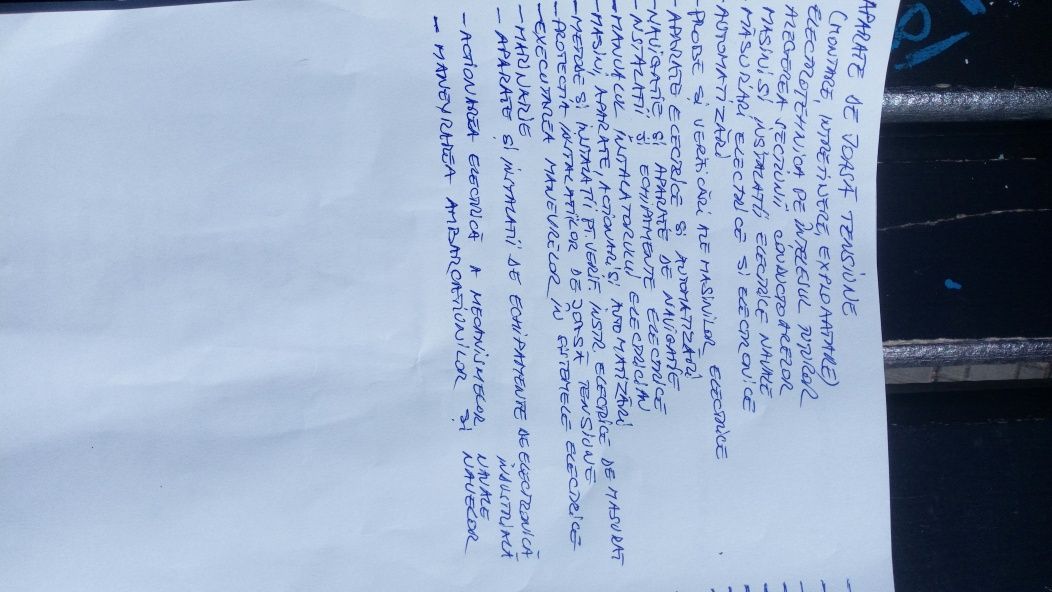 APARATE DE JOASĂ TENSIUNE
(MONTARE, INTRETINERE, EXPLOATARE)
ELECTROTEHNICA PE ÎNTELESUL TUTUROR
ALEGEREA SECTIUNII CONDUCTOARELOR
MASINI SI INSTALATII ELECTRICE NAVALE
-MĂSURĂRI ELECTRICE SI ELECTRONICE
-AUTOMATIZĂRI
-PROBE SI VERIFICĂRI ALE MASINILOR ELECTRICE
-APARATE ELECTRICE SI AUTOMATIZĂRI
-NAVIGATIE SI APARATE DE NAVIGATIE
-INSTALATII SI ECHIPAMENTE ELECTRICE
-MANUALUL INTALATORULUI ELECTRICIAN
-MASINI, APARATE, ACTIONARI SI AUTOMATIZĂRI
-METODE SI INTALATII PT. VERIF. INSTR. ELECTRICE DE MASURAT
-PROTECTIA INTALATIILOR DE JOASĂ TENSIUNE
-EXECUTAREA MANEVRELOR IN SISTEMELE ELECTRICE
-MARINARIE
- APARATE SI INTALATII DE ECHIPAMENTE DE ELECTRONICĂ INDUSTRIALĂ
- ACTIONAREA ELECTRICĂ A MECANISMELOR NAVALE
- MANEVRAREA AMBARCATIUNILOR SI NAVELOR